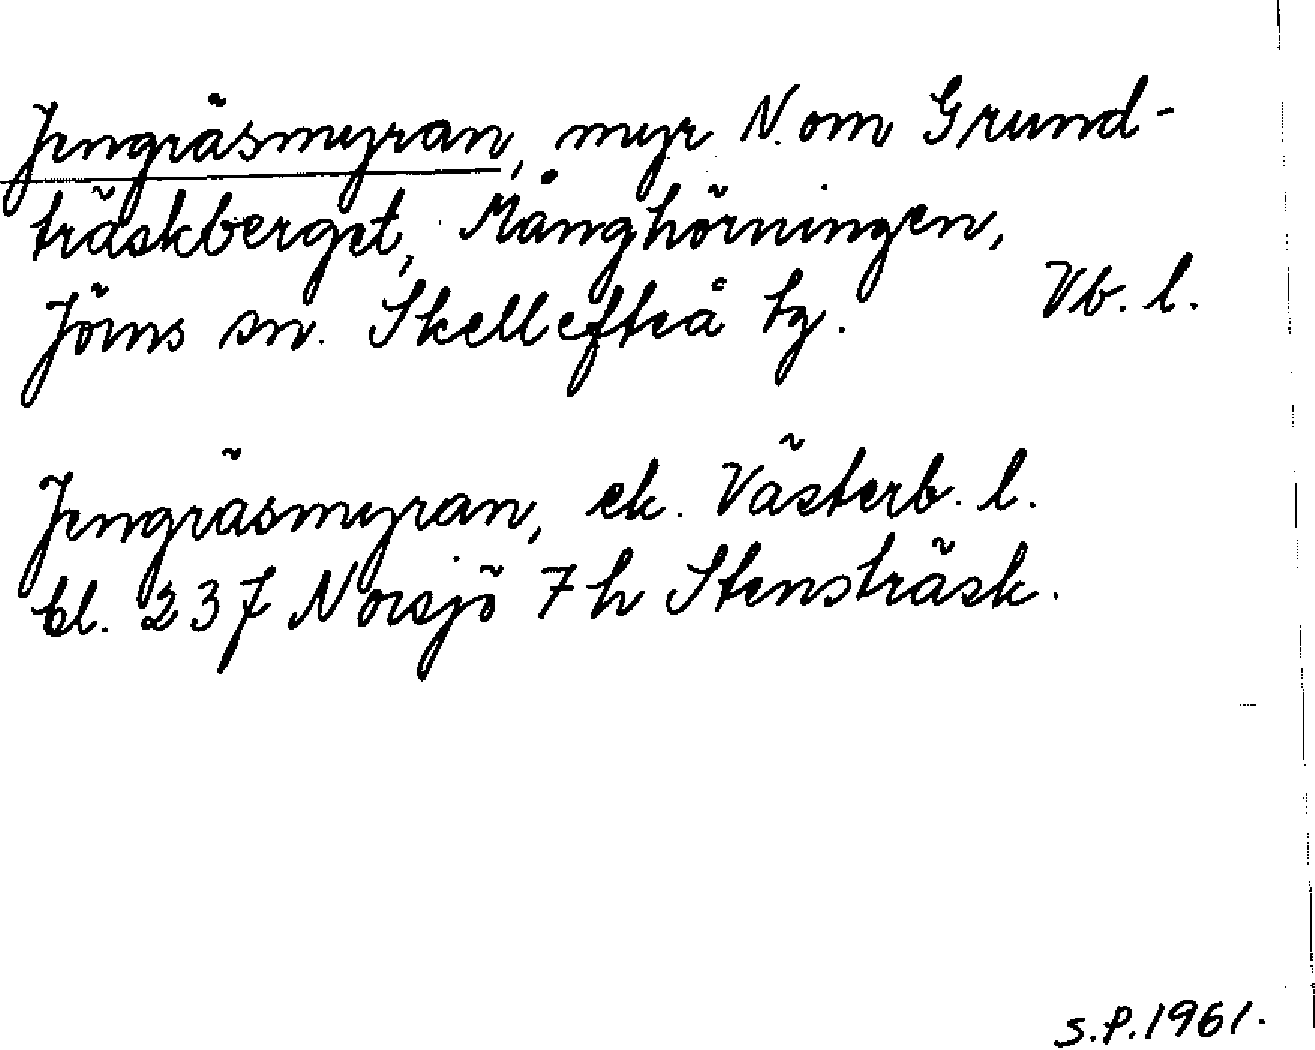 Jerngräsmyran, myr N. om Grund-
träskberget, Månghörningen,
Jörns sn. Skellefteå tg. Vb. l.
Jerngräsmyran, ek. Västerb. l.
bl. 237 Norsjö 7 h Stensträsk.
S.P. 1961.